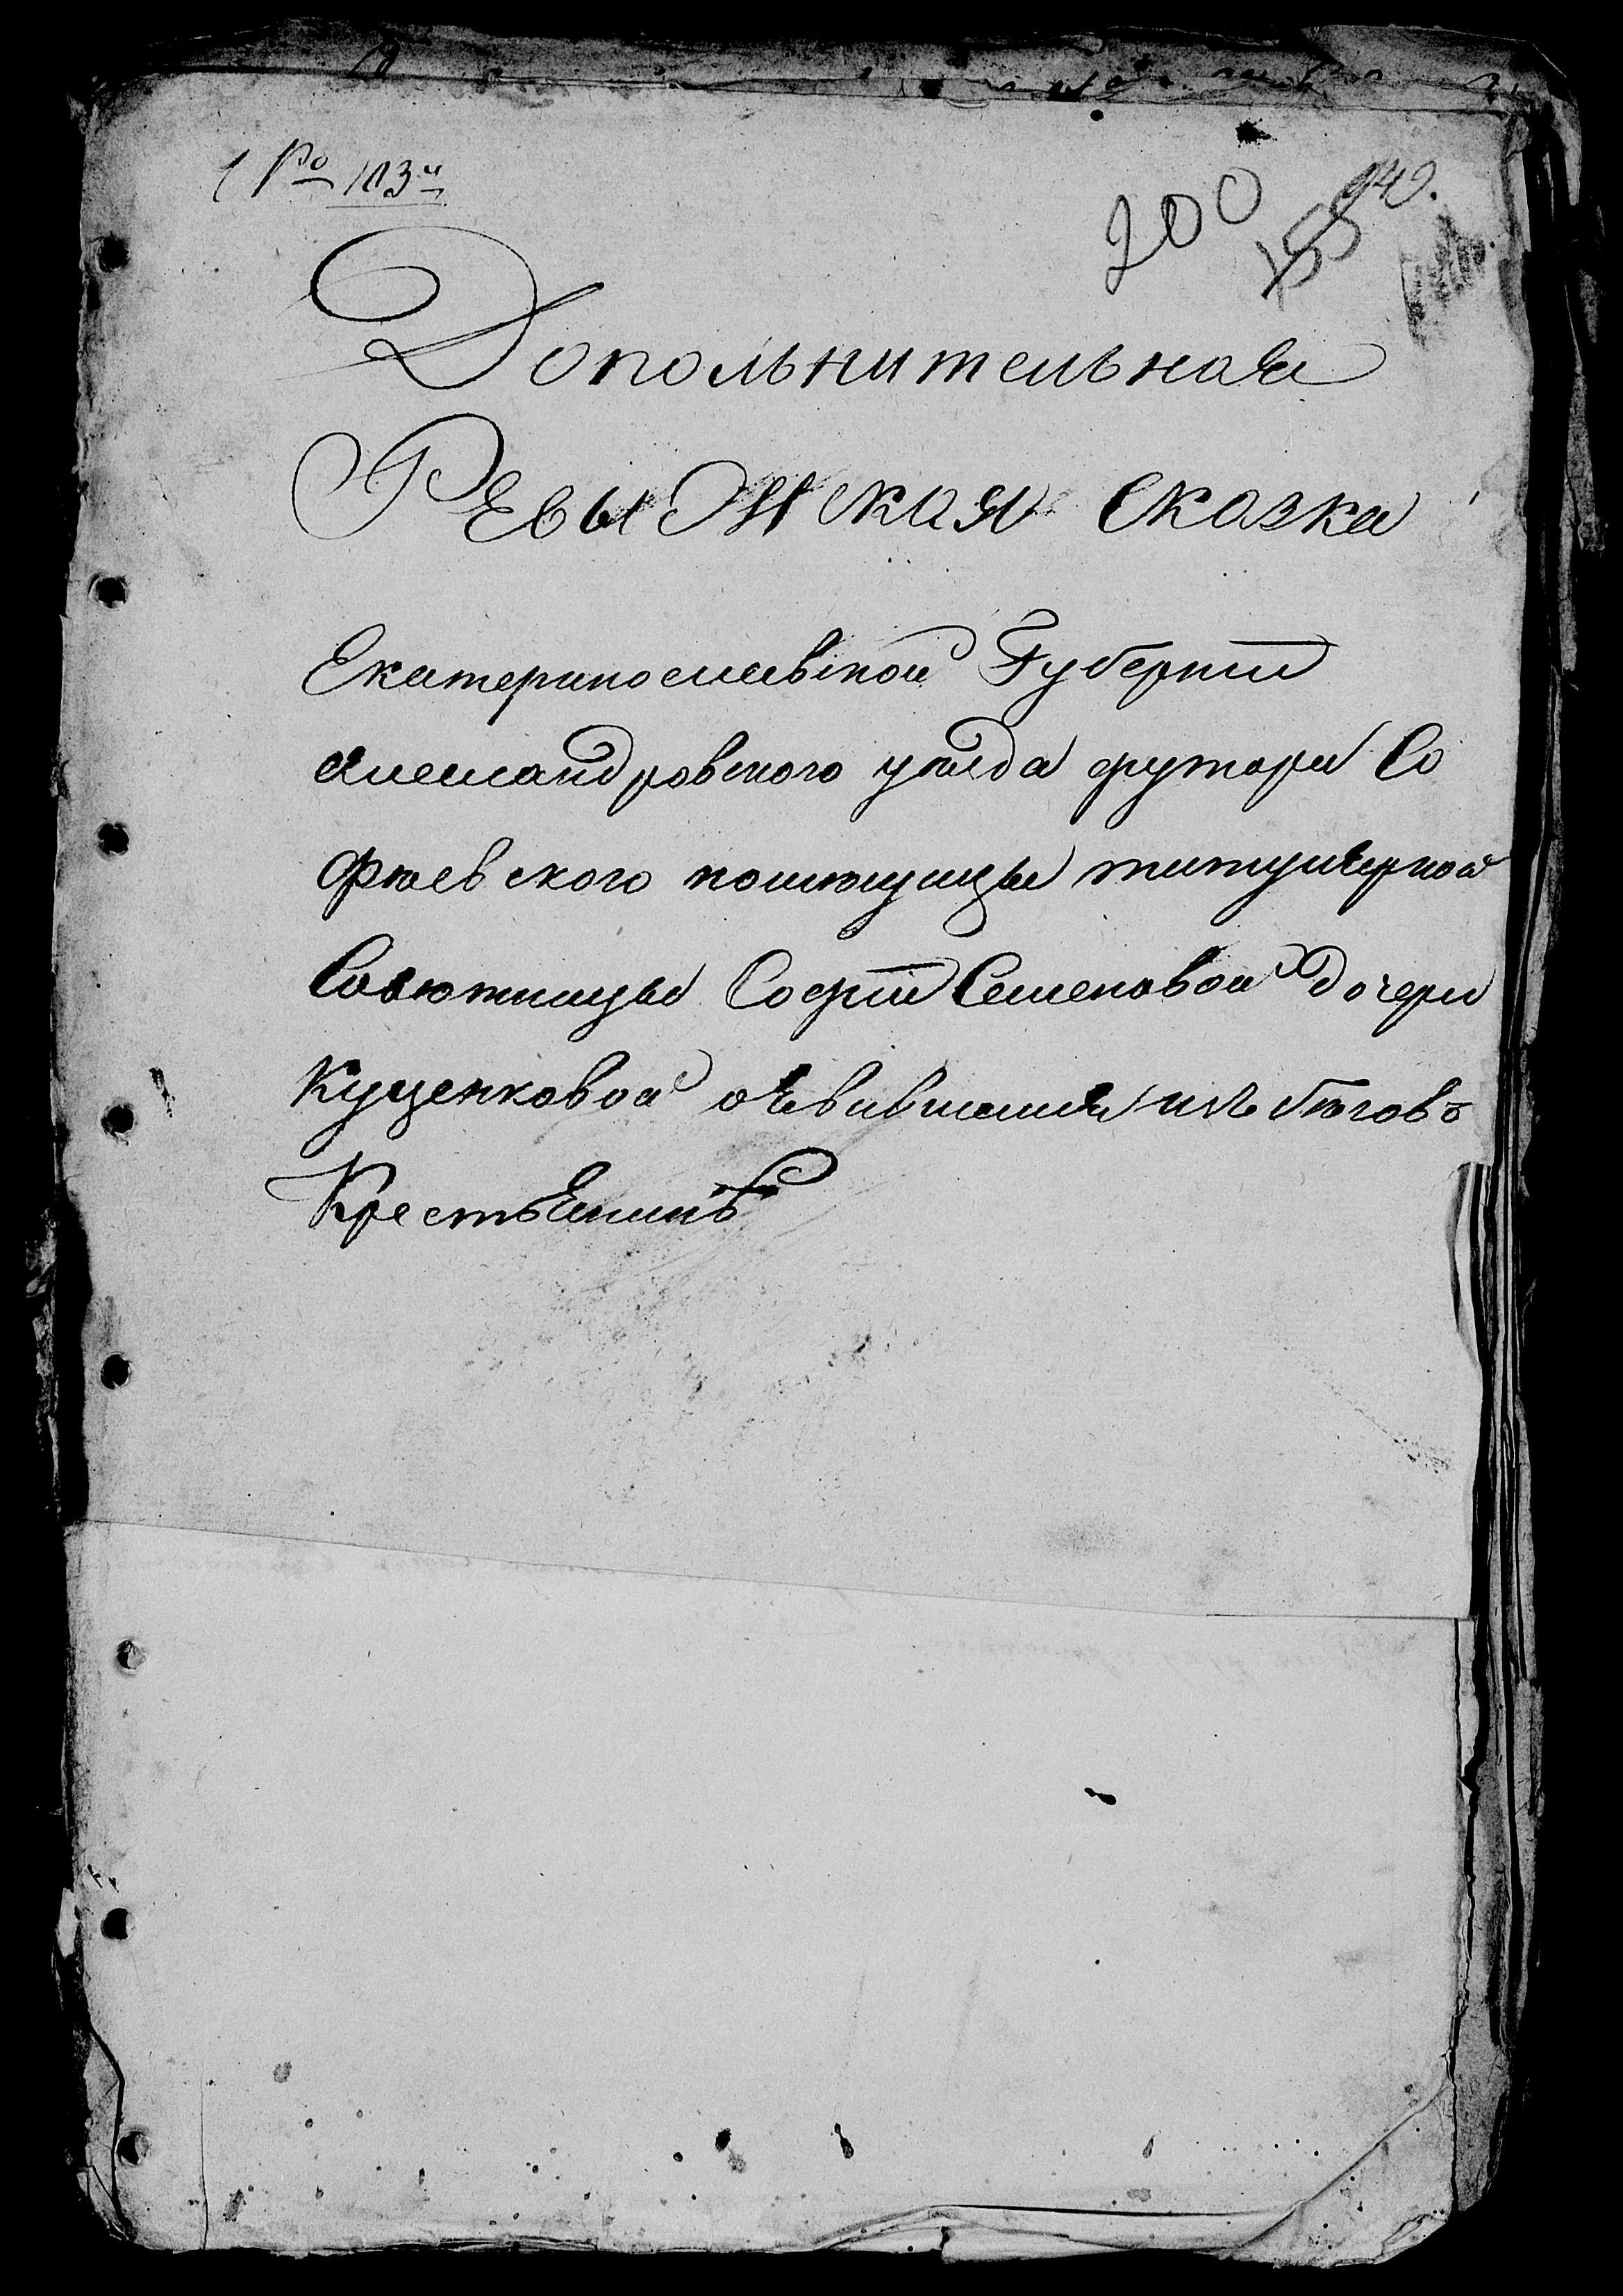 200
155
Допольнительная
Ревыжская сказка
Екатеринославской Губернiи
Александровского уѣзда футора Со
фѣевского помѣщицы титулярной
Совѣтницы Софiи Семеновой дочери
Куценковой о явившимся изъ бѣговъ
Крестьянинѣ